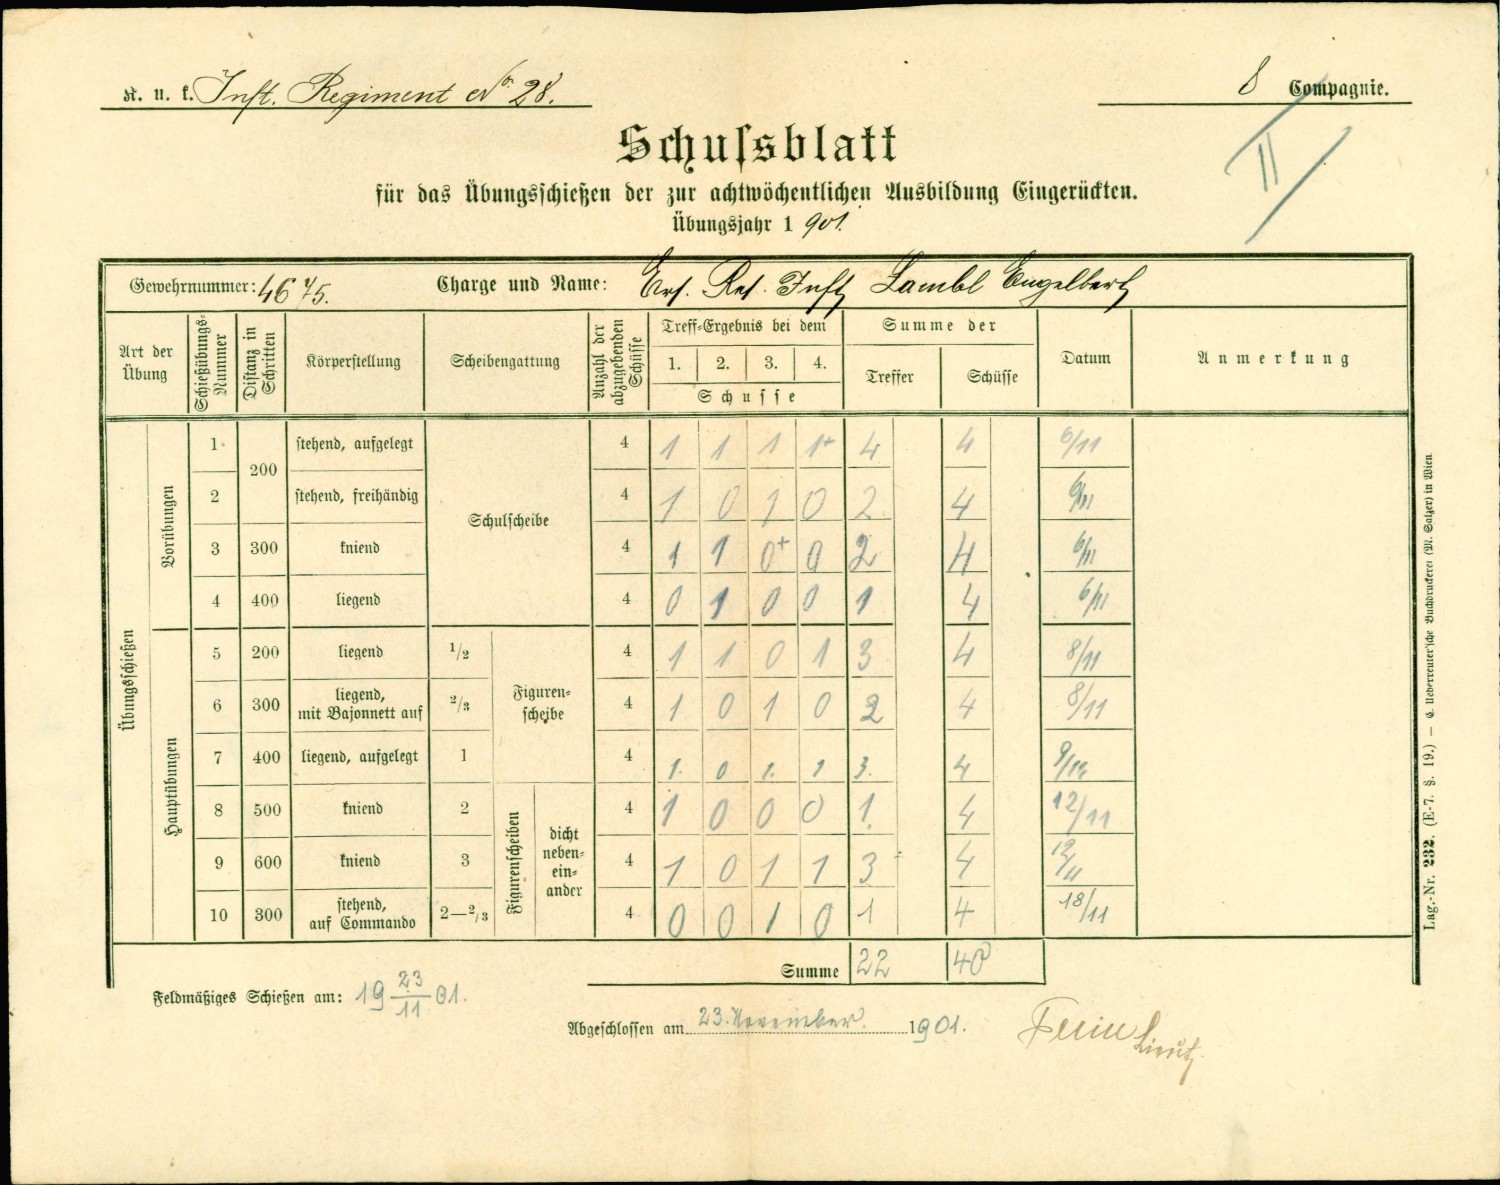 K. u. k. Inft. Regiment No 28.
8 Compagnie.
II
Schussblatt
für das Übungsschießen der zur achtwöchentlichen Ausbildung Eingerückten.
Übungsjahr 1 901.
Gewehrnummer: 4675. Charge und Name: Ers. Res. Inft Lambl Engelbert
Art der Übung Schießübungs-Nummer Distanz in Schritten Körperstellung Scheibengattung Anzahl der abzugebenden Schüsse Treff-Ergebnis bei dem 1. 2. 3. 4. Schusse Summe der Treffer Schüsse Datum Anmerkung
Übungsschießen
Vorübungen
1 200 stehend, aufgelegt Schulscheibe 4 1 1 1 1+ 4 4 6/11
2 stehend, freihändig 4 1 0 1 0 2 4 6/11
3 300 kniend 4 1 1 0+ 0 2 4 6/11
4 400 liegend 4 0 1 0 0 1 4 6/11
Hauptübungen
5 200 liegend 1/2 Figuren-scheibe 4 1 1 0 1 3 4 8/11
6 300 liegend, mit Bajonnett auf 2/3 4 1 0 1 0 2 4 8/11
7 400 liegend, aufgelegt 1 4 1. 0 1. 1 3. 4 9/11
8 500 kniend 2 Figurenscheiben dicht neben-ein-ander 4 1 0 0 0 1. 4 12/11
9 600 kniend 3 4 1 0 1 1 3 4 12/11
10 300 stehend, auf Commando 2—2/3 4 0 0 1 0 1 4 18/11
Summe 22 40
Feldmäßiges Schießen am: 19 23/11 01.
Abgeschlossen am 23. November 1901.
Lieut.
Lag.-Nr. 232. (E-7. §. 19.) — C. Ueberreuter'sche Buchdruckerei (M. Salzer) in Wien